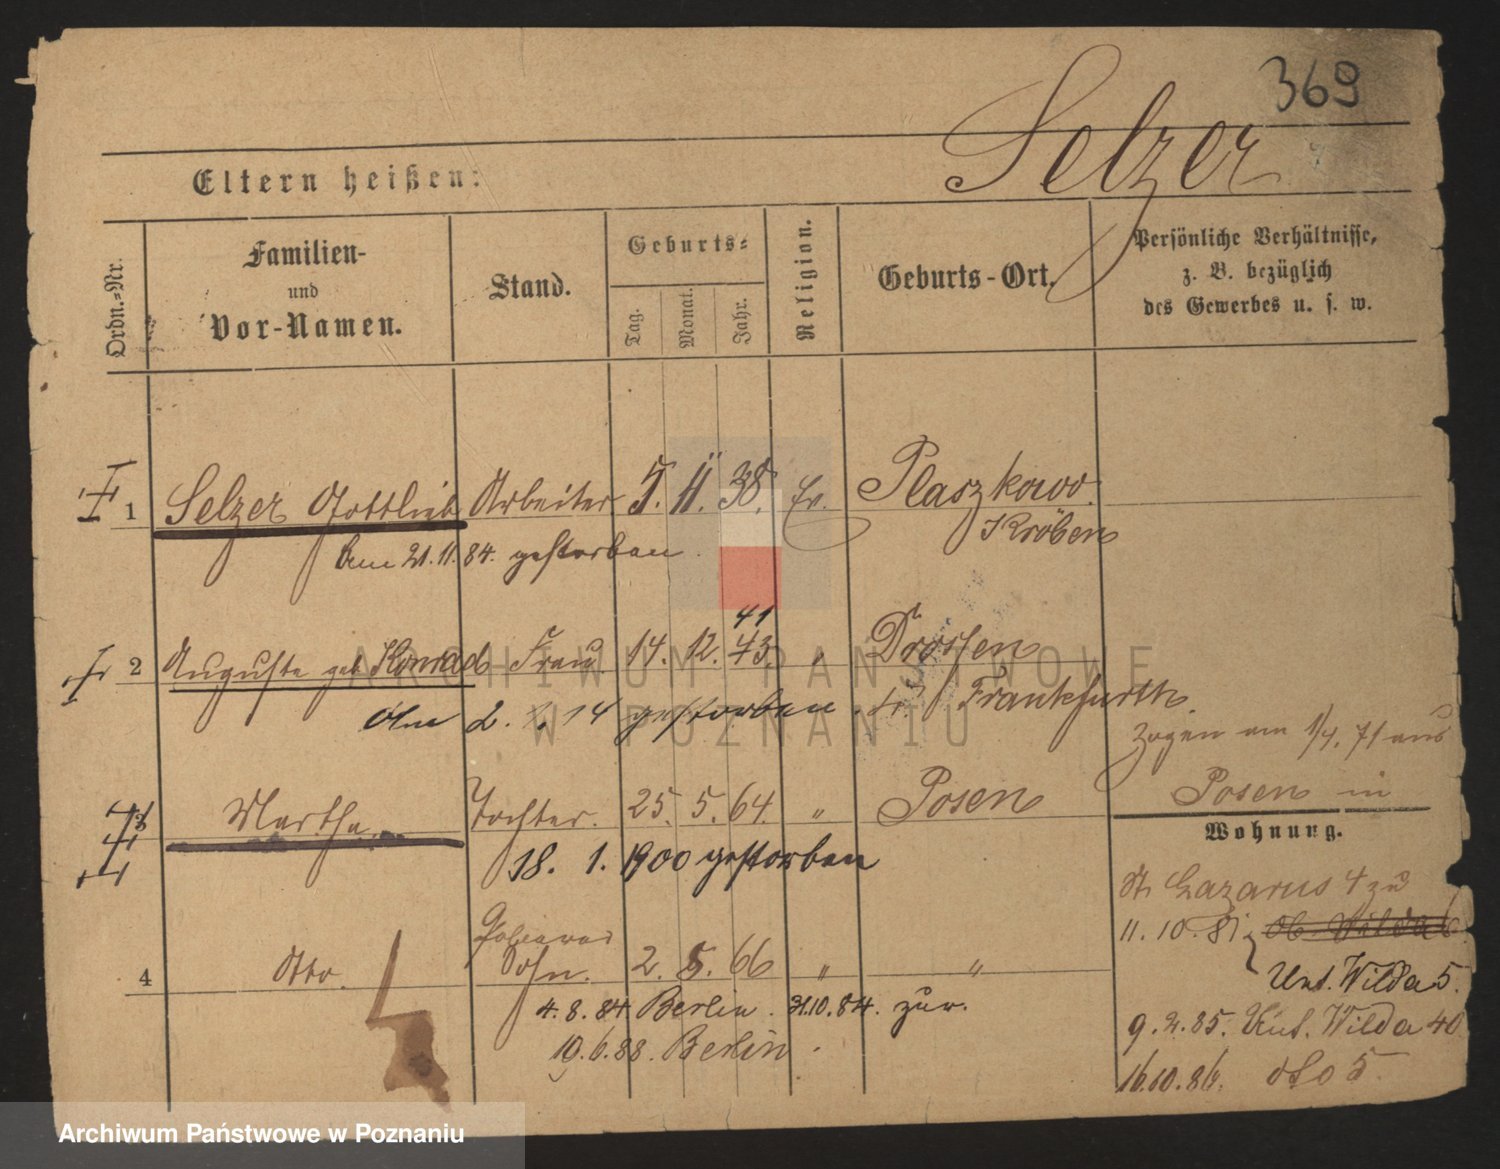 369
Selzer
Eltern heißen:
Ordn.=Nr.
Familien-
und
Vor-Namen.
Stand.
Geburts=
Tag.
Monat.
Jahr.
Religion.
Geburts-Ort.
Persönliche Verhältnisse,
z. B. bezüglich
des Gewerbes u. s. w.
1 Selzer Gottlieb Arbeiter 5. 11. 38. Ev. Plaszkowo
Kröben
Am 21.11.84. gestorben.
41
2 Auguste geb. Konrad Frau 14. 12. 43. " Drossen
Frankfurt
Am 2. 1. 14 gestorben.
Zogen am 1/4. 71 aus
Posen in
3 Martha Tochter. 25. 5. 64. " Posen
18. 1. 1900 gestorben
Wohnung.
St. Lazarus 4 zu
11. 10. 81 Ob. Wilda
Unt. Wilda 5.
4 Otto. Sohn. 2. 5. 66 " "
4. 8. 84. Berlin. 31.10.84. zur.
10.6.88. Berlin.
9. 2. 85. Unt. Wilda 40
16.10.86. dto 5.
ARCHIWUM PAŃSTWOWE
W POZNANIU
Archiwum Państwowe w Poznaniu